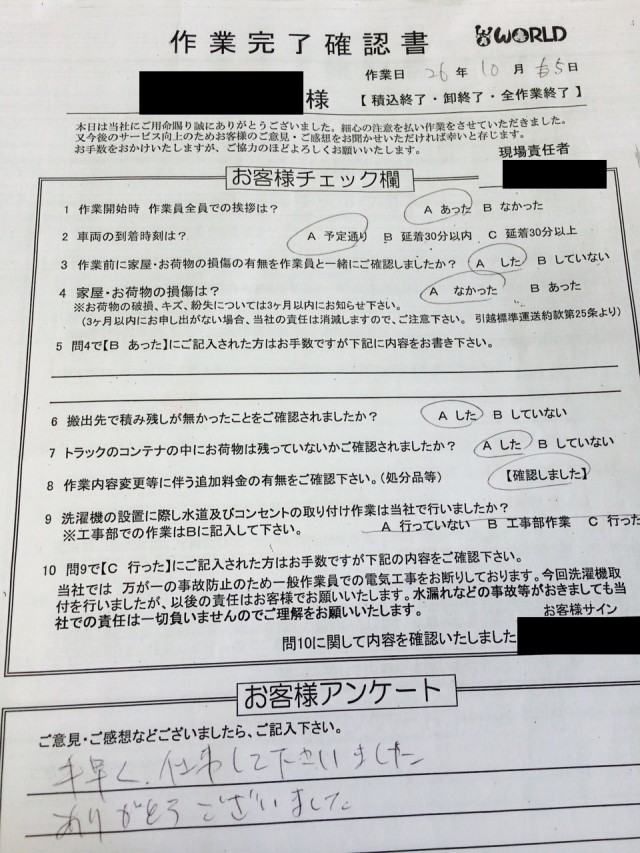 作業完了確認書
WORLD
作業日 26年 10月 5日
様 【 積込終了・卸終了・全作業終了 】
本日は当社にご用命賜り誠にありがとうございました。細心の注意を払い作業をさせていただきました。
又今後のサービス向上のためお客様のご意見・ご感想をお聞かせいただければ幸いと存じます。
お手数をおかけいたしますが、ご協力のほどよろしくお願いいたします。
現場責任者
お客様チェック欄
1 作業開始時 作業員全員での挨拶は? A あった B なかった
2 車両の到着時刻は? A 予定通り B 延着30分以内 C 延着30分以上
3 作業前に家屋・お荷物の損傷の有無を作業員と一緒にご確認しましたか? A した B していない
4 家屋・お荷物の損傷は? A なかった B あった
※お荷物の破損、キズ、紛失については3ヶ月以内にお知らせ下さい。
(3ヶ月以内にお申し出がない場合、当社の責任は消滅しますので、ご注意下さい。 引越標準運送約款第25条より)
5 問4で【B あった】にご記入された方はお手数ですが下記に内容をお書き下さい。
6 搬出先で積み残しが無かったことをご確認されましたか? A した B していない
7 トラックのコンテナの中にお荷物は残っていないかご確認されましたか? A した B していない
8 作業内容変更等に伴う追加料金の有無をご確認下さい。(処分品等) 【確認しました】
9 洗濯機の設置に際し水道及びコンセントの取り付け作業は当社で行いましたか?
※工事部での作業はBに記入して下さい。 A 行っていない B 工事部作業 C 行った
10 問9で【C 行った】にご記入された方はお手数ですが下記の内容をご確認下さい。
当社では 万が一の事故防止のため一般作業員での電気工事をお断りしております。今回洗濯機取
付を行いましたが、以後の責任はお客様でお願いいたします。水漏れなどの事故等がおきましても当
社での責任は一切負いませんのでご理解をお願いいたします。
お客様サイン
問10に関して内容を確認いたしました
お客様アンケート
ご意見・ご感想などございましたら、ご記入下さい。
手早く、仕事して下さいました
ありがとうございました